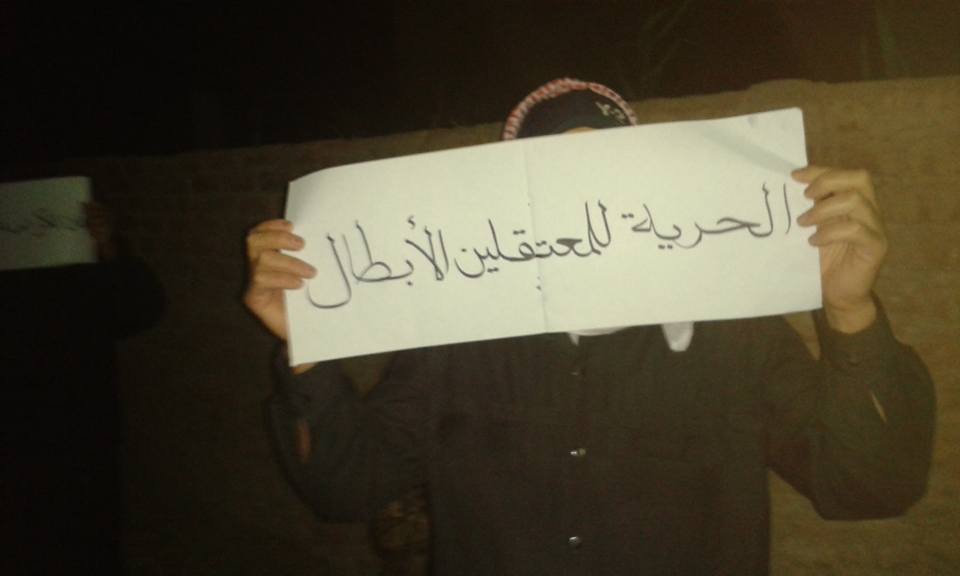 الحرية للمعتقلين الأبطال